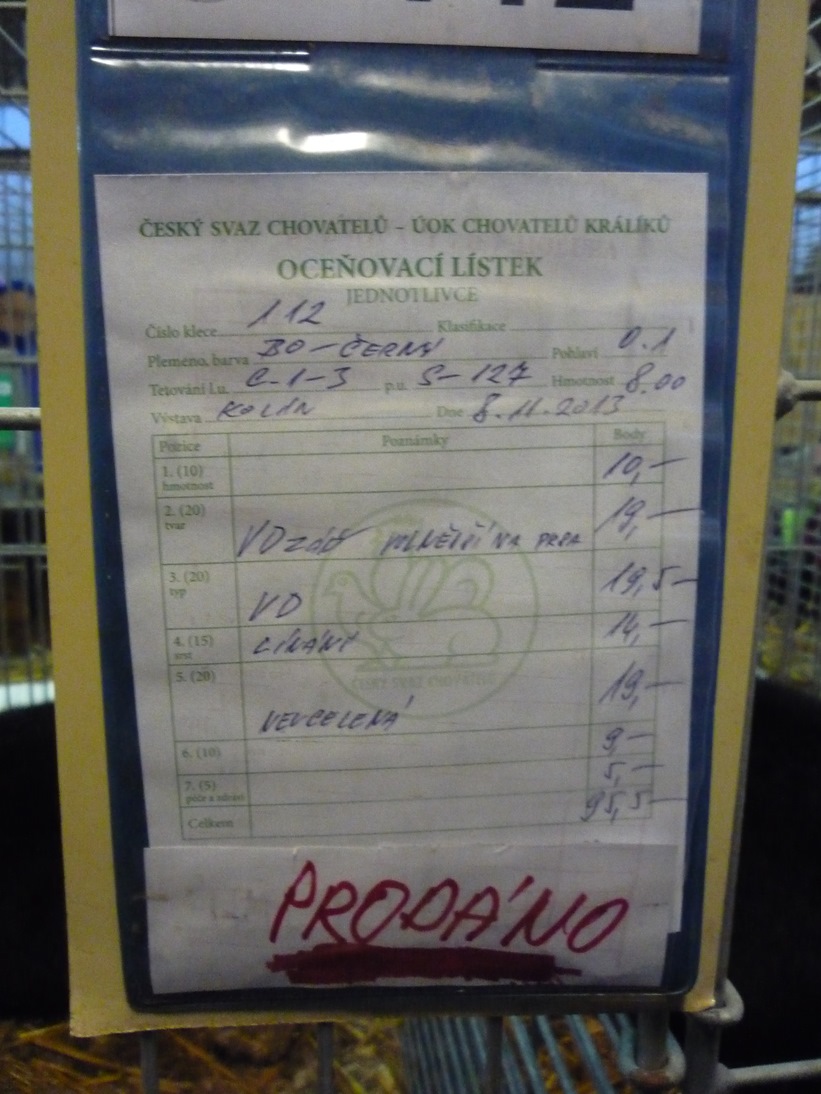 ČESKÝ SVAZ CHOVATELŮ – ÚOK CHOVATELŮ KRÁLÍKŮ
OCEŇOVACÍ LÍSTEK
JEDNOTLIVCE
Číslo klece 112 Klasifikace
Plemeno, barva BO–ČERNÝ Pohlaví 0.1
Tetování l.u. C-1-3 p.u. S-127 Hmotnost 8.00
Výstava KOLÍN Dne 8.11.2013
Pozice Poznámky Body
1. (10) hmotnost 10,—
2. (20) tvar VD záď VOLNĚJŠÍ NA PRSA 19,—
3. (20) typ VD 19,5—
4. (15) srst LÍNÁNÍ 14,—
5. (20) NEUCELENÁ 19,—
6. (10) 9,—
7. (5) péče a zdraví 5,—
Celkem 95,5—
ČESKÝ SVAZ CHOVATELŮ
PRODÁNO